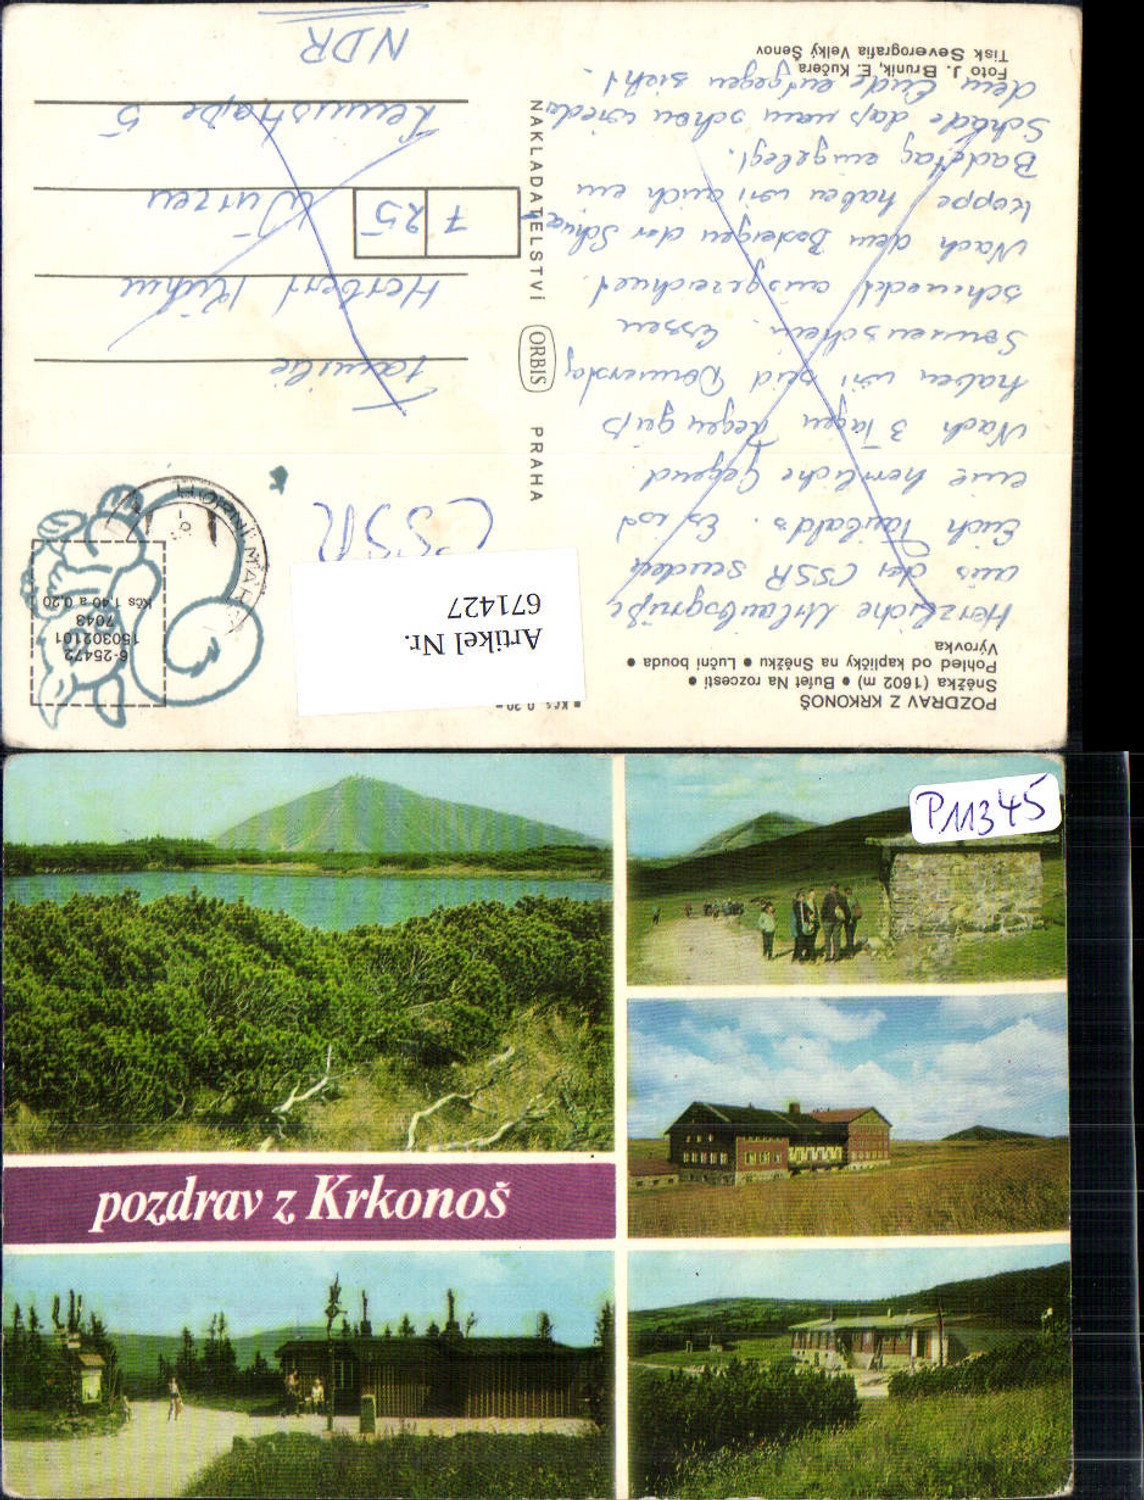 POZDRAV Z KRKONOŠ
Sněžka (1602 m) • Bufet Na rozcestí •
Pohled od kapličky na Sněžku • Luční bouda •
Výrovka
Herzliche Urlaubsgrüße
aus der CSSR senden
Euch Es ist
eine herrliche Gegend.
Nach 3 Tagen Regenguß
haben wir seid Donnerstag
Sonnenschein. Essen
schmeckt ausgezeichnet.
Nach dem Besteigen der Schnee
koppe haben wir auch ein
Badetag eingelegt.
Schade daß man schon wieder
dem Ende entgegen sieht.
Foto J. Brunik, E. Kučera
Tisk Severografia Velký Šenov
NAKLADATELSTVÍ ORBIS PRAHA
Kčs 0,20
Artikel Nr.
671427
ČSSR
6-25472
150302101
7048
Kčs 1,40 a 0,20
HORNÍ MAR
Familie
Herbert Kühn
725 Wurzen
5
NDR
P11345
pozdrav z Krkonoš